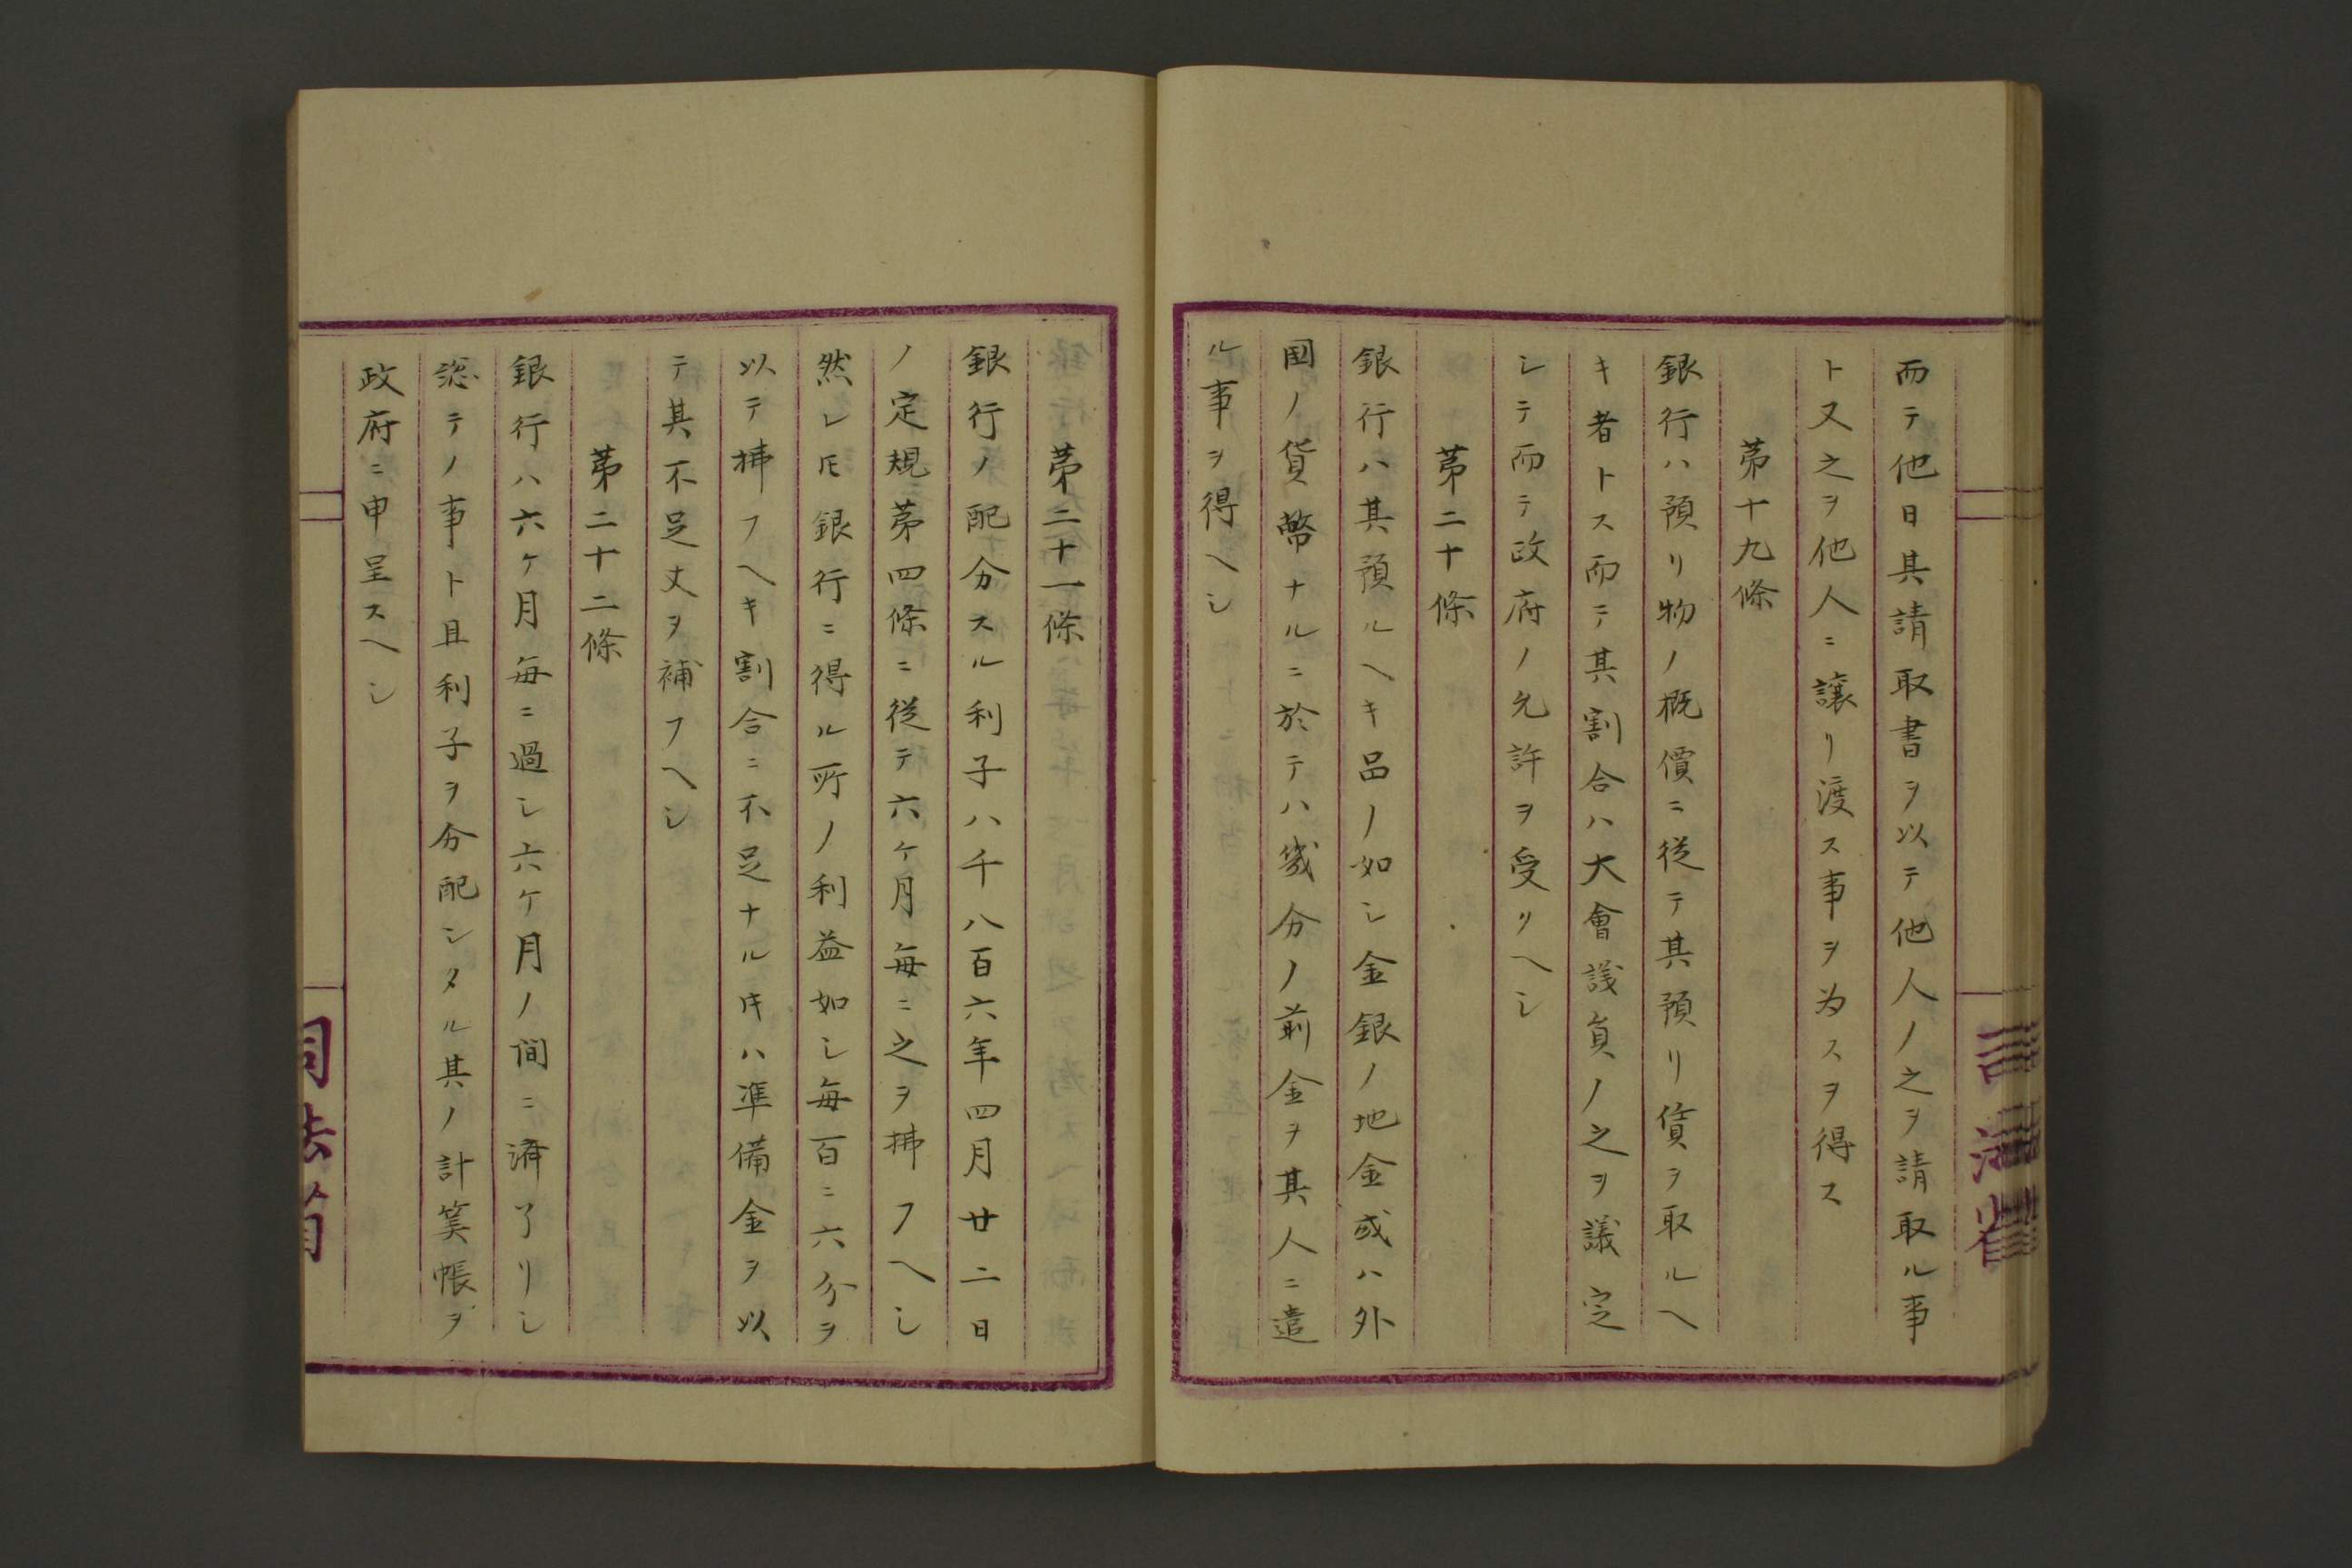 而テ他日其請取書ヲ以テ他人ノ之ヲ請取ル事
ト又之ヲ他人ニ譲リ渡ス事ヲ為スヲ得ス
第十九條
銀行ハ預リ物ノ概價ニ從テ其預リ賃ヲ取ルヘ
キ者トス而テ其割合ハ大會議負ノ之ヲ議定
シテ而テ政府ノ允許ヲ受リヘシ
第二十條
銀行ハ其預ルヘキ品ノ如シ金銀ノ地金或ハ外
国ノ貨幣ナルニ於テハ幾分ノ前金ヲ其人ニ遣
ル事ヲ得ヘシ
第二十一條
銀行ノ配分スル利子ハ千八百六年四月廿二日
ノ定規第四條ニ從テ六ケ月毎ニ之ヲ拂フヘシ
然レ𪜈銀行ニ得ル所ノ利益如シ毎百ニ六分ヲ
以テ拂フヘキ割合ニ不足ナル寸ハ準備金ヲ以
テ其不足丈ヲ補フヘシ
第二十二條
銀行ハ六ケ月毎ニ過シ六ケ月ノ間ニ濟了リシ
総テノ事ト且利子ヲ分配シタル其ノ計筭帳ヲ
政府ニ申呈スヘシ
司法省